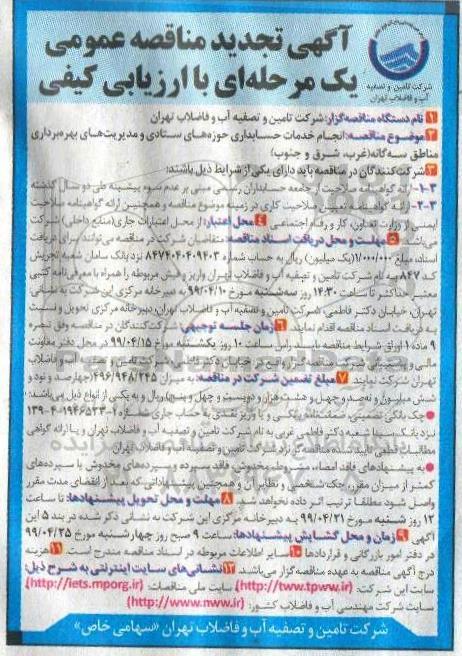 آگهی تجدید مناقصه عمومی
یک مرحله‌ای با ارزیابی کیفی
شرکت تامین و تصفیه
آب و فاضلاب تهران
1 نام دستگاه مناقصه‌گزار: شرکت تامین و تصفیه آب و فاضلاب تهران
2 موضوع مناقصه: انجام خدمات حسابداری حوزه‌های ستادی و مدیریت‌های بهره‌برداری
مناطق سه‌گانه (غرب، شرق و جنوب)
3 شرکت‌کنندگان در مناقصه باید دارای یکی از شرایط ذیل باشند:
۳-۱- ارائه گواهینامه صلاحیت از جامعه حسابداران رسمی مبنی بر عدم سوء پیشینه طی دو سال گذشته
۳-۲- ارائه گواهینامه تعیین صلاحیت کاری در زمینه موضوع مناقصه و همچنین ارائه گواهینامه صلاحیت
ایمنی از وزارت تعاون، کار و رفاه اجتماعی 4 محل اعتبار: از محل اعتبارات جاری (منابع داخلی) شرکت
می‌باشد. 5 مهلت و محل دریافت اسناد مناقصه: متقاضیان شرکت در مناقصه می‌توانند برای دریافت
اسناد، مبلغ ۱/۰۰۰/۰۰۰ (یک میلیون) ریال به حساب شماره ۸۴۷۴۰۴۰۴۰۹۴۰۳ نزد بانک سامان شعبه تجریش
کد ۸۴۷ به نام شرکت تامین و تصفیه آب و فاضلاب تهران واریز و فیش مربوطه را همراه با معرفی‌نامه کتبی
معتبر حداکثر تا ساعت ۱۴:۳۰ روز سه‌شنبه مورخ ۹۹/۰۴/۱۰ به دبیرخانه مرکزی این شرکت به نشانی
تهران، خیابان دکتر فاطمی، شرکت تامین و تصفیه آب و فاضلاب تهران، دبیرخانه مرکزی تحویل و نسبت
به دریافت اسناد مناقصه اقدام نمایند. 6 زمان جلسه توجیهی: شرکت‌کنندگان در مناقصه وفق تبصره
۹ ماده ۱ اوراق شرایط مناقصه باید راس ساعت ۱۰ روز یکشنبه مورخ ۹۹/۰۴/۱۵ در محل دفتر معاونت
مالی و پشتیبانی شرکت مناقصه‌گزار واقع در خیابان دکتر فاطمی، شرکت تامین و تصفیه آب و فاضلاب
تهران شرکت نمایند. 7 مبلغ تضمین شرکت در مناقصه: به میزان ۴۹۶/۹۴۸/۲۴۵ (چهارصد و نود و
شش میلیون و نهصد و چهل و هشت هزار و دویست و چهل و پنج) ریال و به یکی از انواع ذیل می‌باشد:
● چک بانکی تضمینی، ضمانت‌نامه بانکی و یا واریز نقدی به حساب جاری شماره
نزد بانک سینا شعبه دکتر فاطمی غربی به نام شرکت تامین و تصفیه آب و فاضلاب تهران و یا ارائه گواهی
مطالبات قطعی تایید شده مناقصه‌گر نزد شرکت تامین و تصفیه آب و فاضلاب تهران
● به پیشنهادهای فاقد امضاء، مشروط، مخدوش، فاقد سپرده و سپرده‌های مخدوش یا سپرده‌های
کمتر از میزان مقرر، چک شخصی و نظایر آن و همچنین پیشنهاداتی که بعد از انقضای مدت مقرر
واصل شود مطلقا ترتیب اثر داده نخواهد شد. 8 مهلت و محل تحویل پیشنهادها: تا ساعت
۱۲ روز شنبه مورخ ۹۹/۰۴/۲۱ به دبیرخانه مرکزی این شرکت به نشانی ذکر شده در بند ۵ این
آگهی 9 زمان و محل گشایش پیشنهادها: ساعت ۹ صبح روز چهارشنبه مورخ ۹۹/۰۴/۲۵
در دفتر امور بازرگانی و قراردادها 10 سایر اطلاعات مربوطه در اسناد مناقصه مندرج است. 11 هزینه
درج آگهی مناقصه به عهده مناقصه‌گزار می‌باشد. 12 نشانی‌های سایت اینترنتی به شرح ذیل:
سایت این شرکت: (http://tww.tpww.ir)، سایت ملی مناقصات: (http://iets.mporg.ir)،
سایت شرکت مهندسی آب و فاضلاب کشور: (http://www.nww.ir)
شرکت تامین و تصفیه آب و فاضلاب تهران «سهامی خاص»